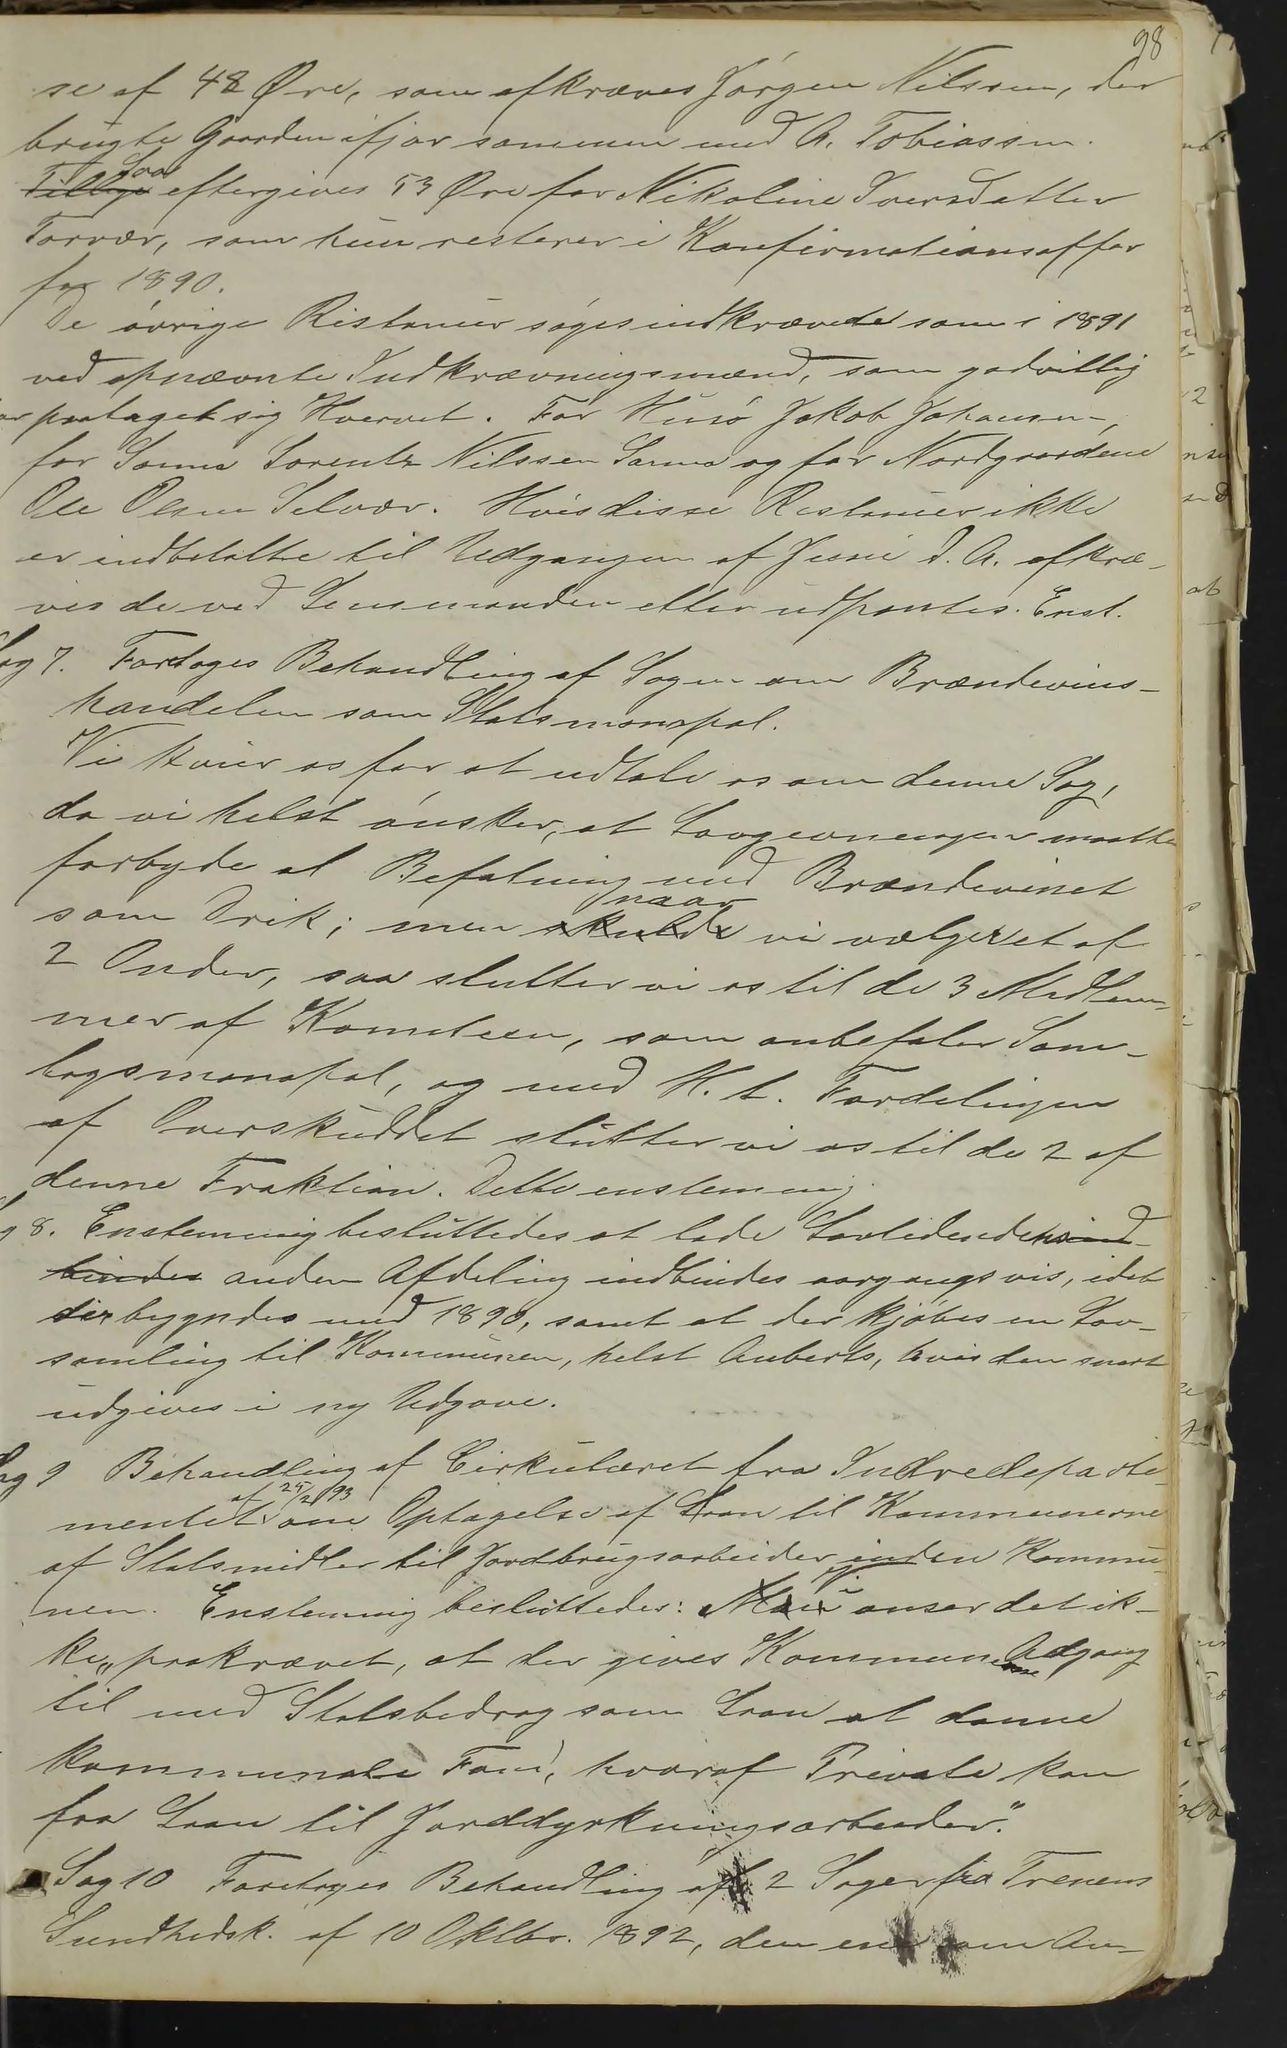 98
se af 48 Øre, som afkræves Jørgen Nilssen, der
brugte Gaarden ifjor sammen med A. Tobiassen.
Saa
eftergives 53 Øre for Nikoline Iversdatter
Torvær, som hun resterer i Konfirmationsoffer
for 1890.
De øvrige Restancer søges indkrævede som i 1891
ved opnævnte Indkrævningsmænd, som godvillig
har paataget sig Hvervet. For Husø Jakob Johansen,
for Sanna Lorentz Nilssen Sanna og for Nordgaardene
Ole Olsen Selvær. Hvis disse Restancer ikke
er indbetalte til Udgangen af Juni d. A. afkræ-
ves de ved Lensmanden eller udpantes. Enst.
Sag 7. Foretoges Behandling af Sagen om Brændevins-
handelen som Statsmonopol.
Vi kvier os for at udtale os om denne Sag,
da vi helst ønsker, at Lovgevningen maatte
forbyde al Befatning med Brændevinet
naar
som Drik; men skulde vi vælger et af
2 Onder, saa slutter vi os til de 3 Medlem-
mer af Komiteen, som anbefaler Sam-
lagsmonopol, og med H. t. Fordelingen
af Overskuddet slutter vi os til de 2 af
denne Fraktion. Dette enstemmig.
Sag 8. Enstemmig besluttedes at lade Lovtidendens ind-
bindes anden Afdeling indbindes aargangsvis, idet
der begyndes med 1890, samt at der kjøbes en Lov-
samling til Kommunen, helst Auberts, hvis den snart
udgives i ny Udgave.
Sag 9 Behandling af Cirkulæret fra Indredeparte-
af 25/2 93
mentet om Optagelse af Laan til Kommunerne
af Statsmidler til Jordbrugsarbeider inden Kommu-
Vi
nen. Enstemmig besluttedes: anser det ik-
ke „paakrævet, at der gives Kommunerne Adgang
til med Statsbedrag som Laan at danne
kommunale Fond, hvoraf Private kan
faa Laan til Jorddyrkningsarbeider.“
Sag 10 Foretoges Behandling af 2 Sager fra Trænens
Sundhedsk. af 10 Oktbr. 1892, den ene om An-